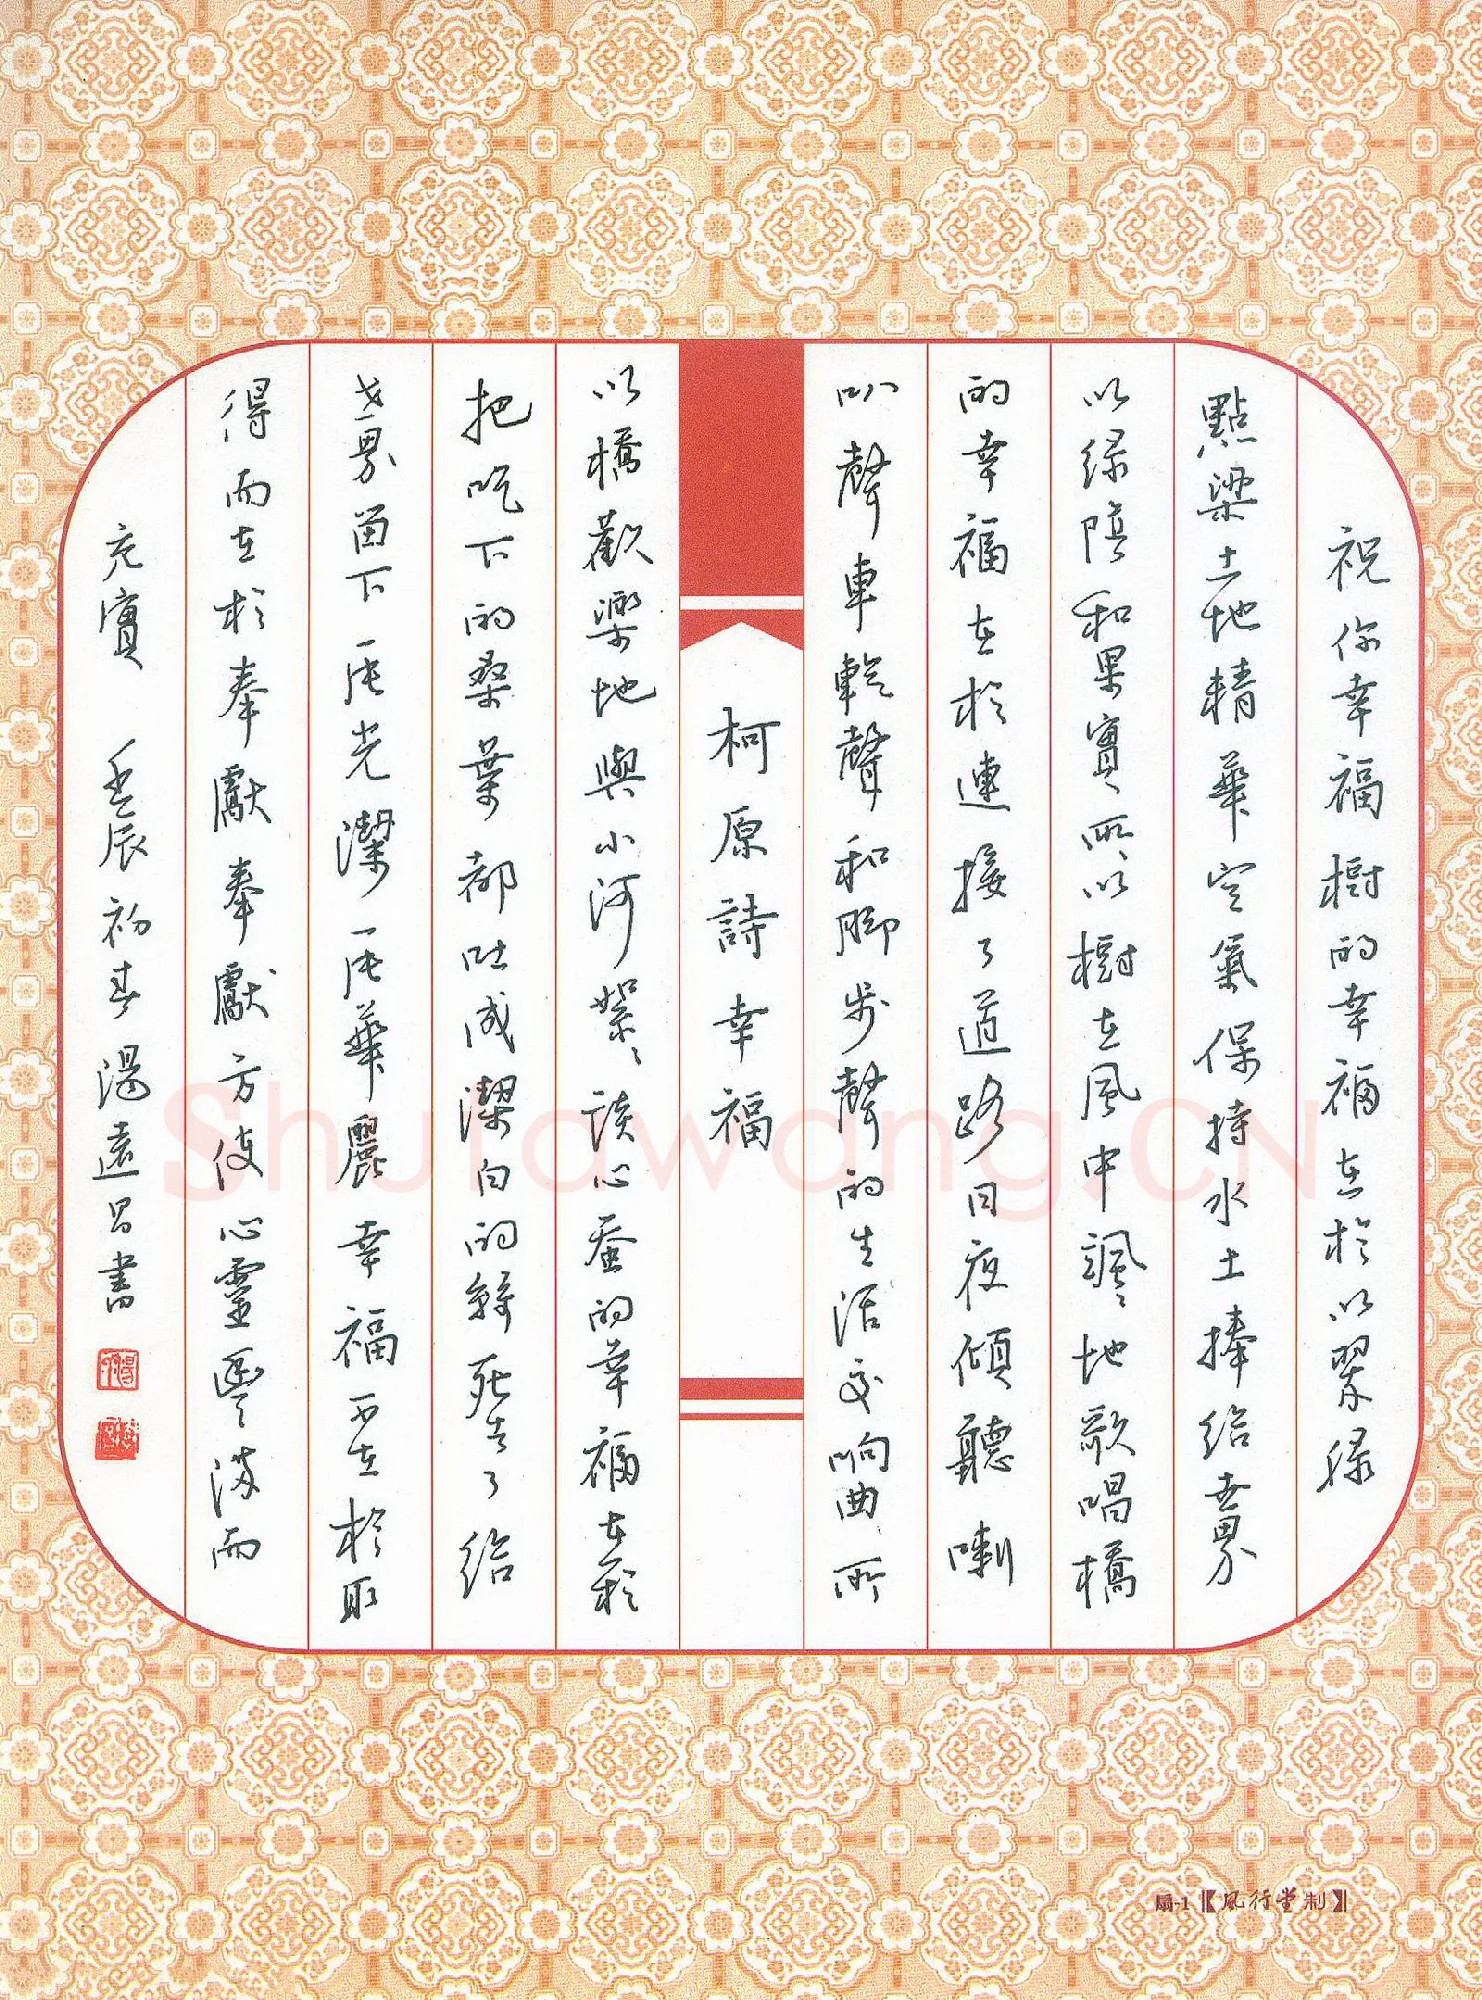 祝你幸福樹的幸福在於以翠绿
點染土地精華空氣保持水土捧给世界
以绿陰和果實所以樹在風中颯颯地歌唱橋
的幸福在於連接了道路日夜傾聽喇
叭聲車輪聲和脚步聲的生活交响曲所
柯原詩幸福
以橋歡樂地與小河絮絮談心蚕的幸福在於
把吃下的桑葉都吐成潔白的絲死去了给
世界留下一片光潔一片華麗幸福不在於取
得而在於奉獻奉獻方使心靈豐满而
充實 壬辰初春湯遠昌書
扇-1【風行堂制】
Shufawang.CN